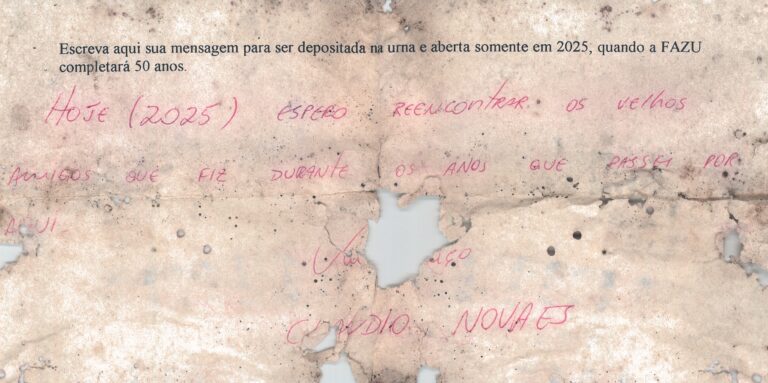 Escreva aqui sua mensagem para ser depositada na urna e aberta somente em 2025, quando a FAZU
completará 50 anos.
HOJE (2025) ESPERO REENCONTRAR OS VELHOS
AMIGOS QUE FIZ DURANTE OS ANOS QUE PASSEI POR
AQUI.
CLAUDIO NOVAES